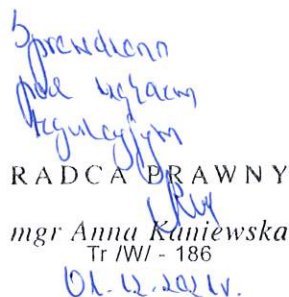 Sprawdzono
pod względem
regulacyjnym
RADCA PRAWNY
mgr Anna Kaniewska
Tr /W/ - 186
01.12.2021r.